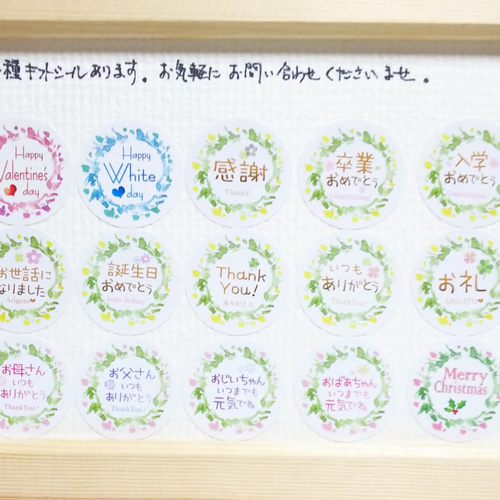 種ギフトシールあります。お気軽にお問い合わせくださいませ。
Happy
Valentine's
day
Happy
White
day
感謝
Thanks!
卒業
おめでとう
入学
おめでとう
お世話に
なりました
Arigato
誕生日
おめでとう
Happy Birthday!
Thank
You!
ありがとう
いつも
ありがとう
ThankYou!
お礼
ARIGATO
お母さん
いつも
ありがとう
ThankYou!
お父さん
いつも
ありがとう
ThankYou!
おじいちゃん
いつまでも
元気でね
おばあちゃん
いつまでも
元気でね
Merry
Christmas